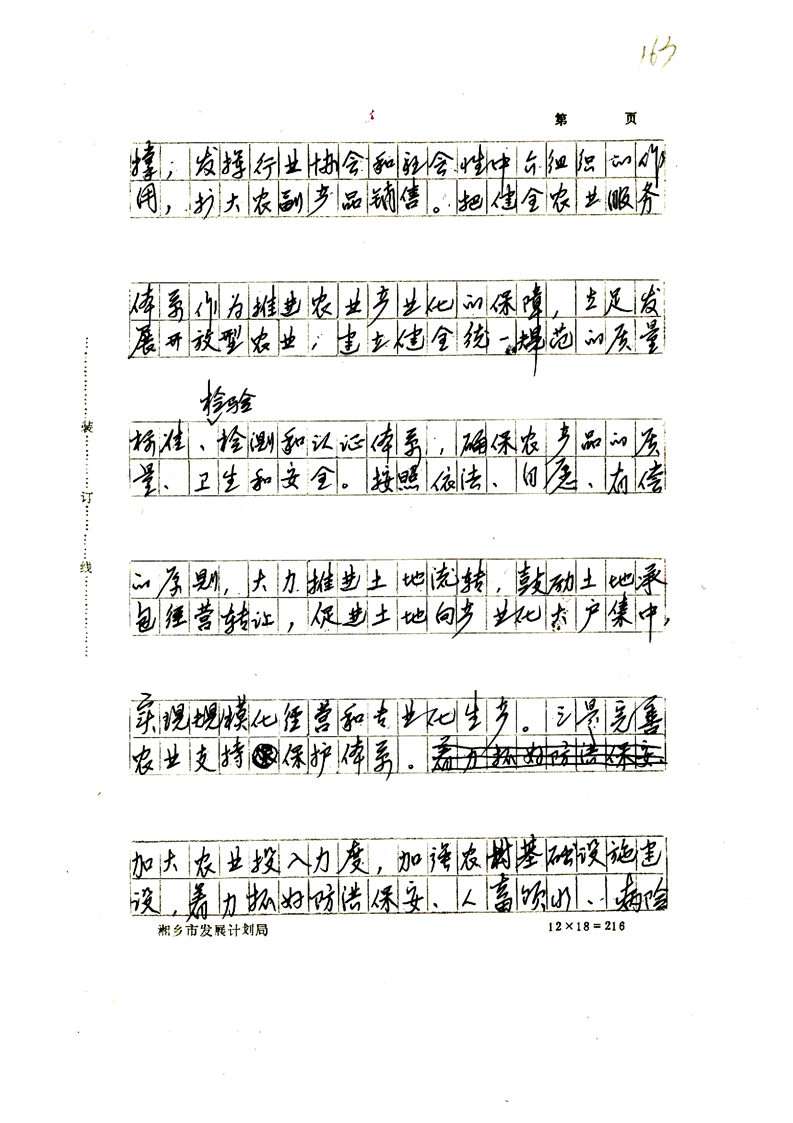 163
第 页
撑；发挥行业协会和社会性中介组织的作
用，扩大农副产品销售。把健全农业服务
体系作为推进农业产业化的保障，立足发
展开放型农业；建立健全统一规范的质量
检验
标准、检测和认证体系，确保农产品的质
量、卫生和安全。按照依法、自愿、有偿
的原则，大力推进土地流转，鼓励土地承
包经营转让，促进土地向产业化大户集中，
实现规模化经营和专业化生产。三是完善
农业支持保护体系。着力抓好防洪保安、
加大农业投入力度，加强农村基础设施建
设，着力抓好防洪保安、人畜饮水、病险
湘乡市发展计划局
12×18=216
装订线